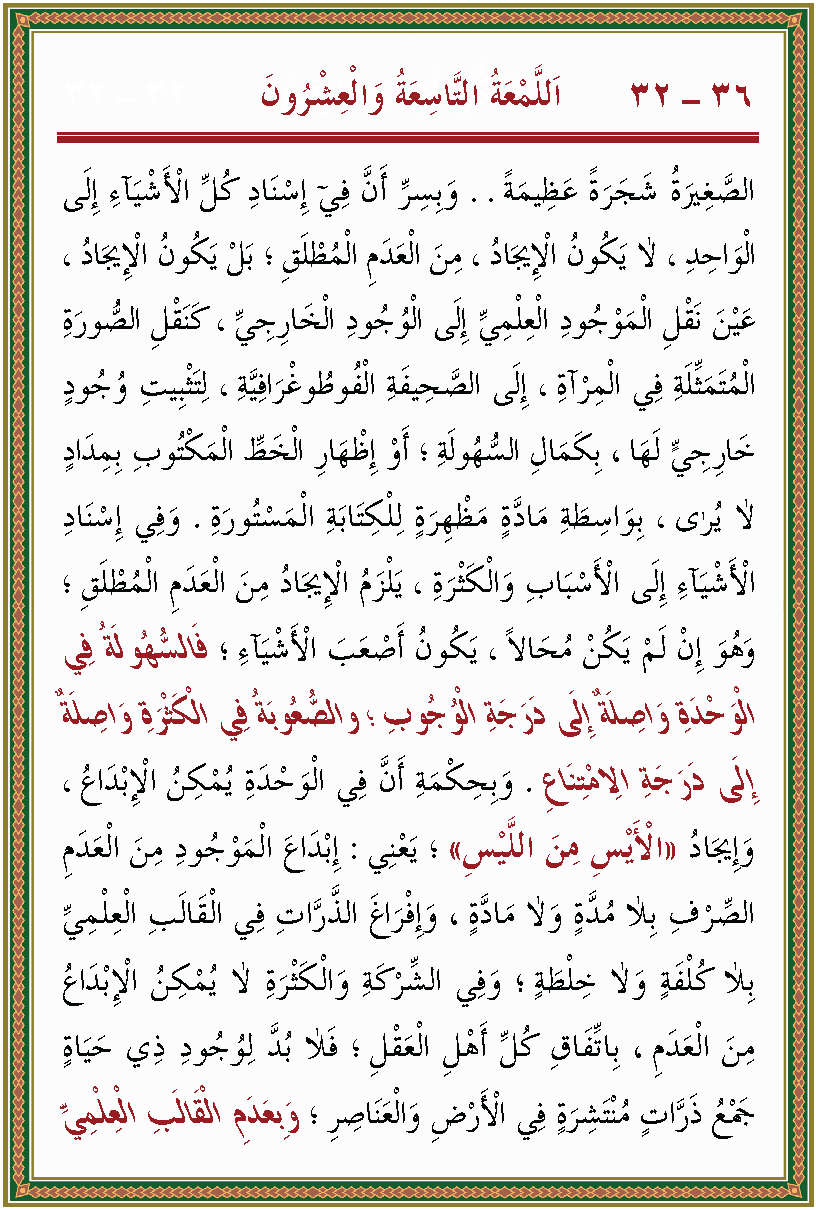 ٣٦ – ٣٢ اَللَّمْعَةُ التَّاسِعَةُ وَالْعِشْرُونَ
الصَّغِيرَةُ شَجَرَةً عَظِيمَةً . . وَبِسِرِّ أَنَّ فِيٓ إِسْنَادِ كُلِّ الْأَشْيَآءِ إِلَى
الْوَاحِدِ ، لَا يَكُونُ الْإِيجَادُ ، مِنَ الْعَدَمِ الْمُطْلَقِ ؛ بَلْ يَكُونُ الْإِيجَادُ ،
عَيْنَ نَقْلِ الْمَوْجُودِ الْعِلْمِيِّ إِلَى الْوُجُودِ الْخَارِجِيِّ ، كَنَقْلِ الصُّورَةِ
الْمُتَمَثِّلَةِ فِي الْمِرْآةِ ، إِلَى الصَّحِيفَةِ الْفُوطُوغْرَافِيَّةِ ، لِتَثْبِيتِ وُجُودٍ
خَارِجِيٍّ لَهَا ، بِكَمَالِ السُّهُولَةِ ؛ أَوْ إِظْهَارِ الْخَطِّ الْمَكْتُوبِ بِمِدَادٍ
لَا يُرٰى ، بِوَاسِطَةِ مَادَّةٍ مَظْهِرَةٍ لِلْكِتَابَةِ الْمَسْتُورَةِ . وَفِي إِسْنَادِ
الْأَشْيَآءِ إِلَى الْأَسْبَابِ وَالْكَثْرَةِ ، يَلْزَمُ الْإِيجَادُ مِنَ الْعَدَمِ الْمُطْلَقِ ؛
وَهُوَ إِنْ لَمْ يَكُنْ مُحَالاً ، يَكُونُ أَصْعَبَ الْأَشْيَآءِ ؛ فَالسُّهُولَةُ فِي
الْوَحْدَةِ وَاصِلَةٌ إِلَى دَرَجَةِ الْوُجُوبِ ؛ والصُّعُوبَةُ فِي الْكَثْرَةِ وَاصِلَةٌ
إِلَى دَرَجَةِ الِامْتِنَاعِ . وَبِحِكْمَةِ أَنَّ فِي الْوَحْدَةِ يُمْكِنُ الْإِبْدَاعُ ،
وَإِيجَادُ «الْأَيْسِ مِنَ اللَّيْسِ» ؛ يَعْنِي : إِبْدَاعَ الْمَوْجُودِ مِنَ الْعَدَمِ
الصِّرْفِ بِلَا مُدَّةٍ وَلَا مَادَّةٍ ، وَإِفْرَاغَ الذَّرَّاتِ فِي الْقَالَبِ الْعِلْمِيِّ
بِلَا كُلْفَةٍ وَلَا خِلْطَةٍ ؛ وَفِي الشِّرْكَةِ وَالْكَثْرَةِ لَا يُمْكِنُ الْإِبْدَاعُ
مِنَ الْعَدَمِ ، بِاتِّفَاقِ كُلِّ أَهْلِ الْعَقْلِ ؛ فَلَا بُدَّ لِوُجُودِ ذِي حَيَاةٍ
جَمْعُ ذَرَّاتٍ مُنْتَشِرَةٍ فِي الْأَرْضِ وَالْعَنَاصِرِ ؛ وَبِعَدَمِ الْقَالَبِ الْعِلْمِيِّ